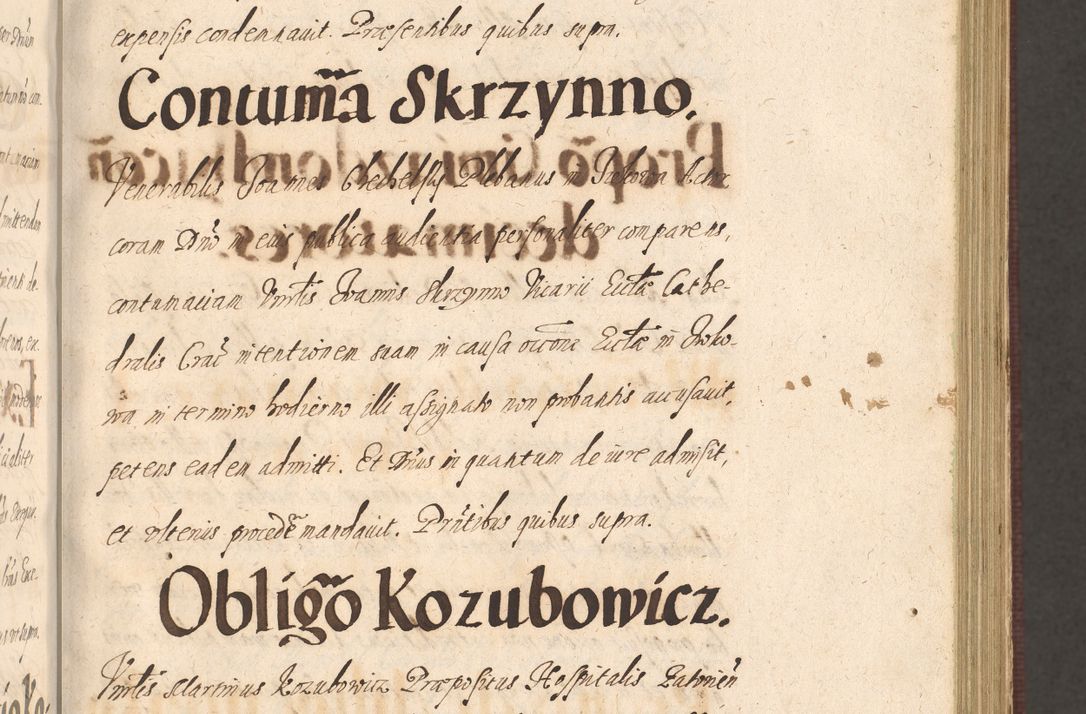 expensis condemnauit. Præsentibus quibus supra.
Contum̃a Skrzynno.
Venerabilis Joannes Plebanus in Actor
coram Dn̄o in eius publica audientia personaliter comparens,
contumaciam Vnrlis Joannis Skrzynno Vicarii Ecclæ Cathe-
dralis Crac̃ intentionem suam in causa Ecclæ in
wa in termino hodierno illi assignato non probantis accusauit,
petens eadem admitti. Et Dnus in quantum de iure admisit,
et vlterius procedẽ mandauit. Pr̃ntibus quibus supra.
Obligõ Kozubowicz.
Vnrlis Martinus Kozubowicz Præpositus Hospitalis